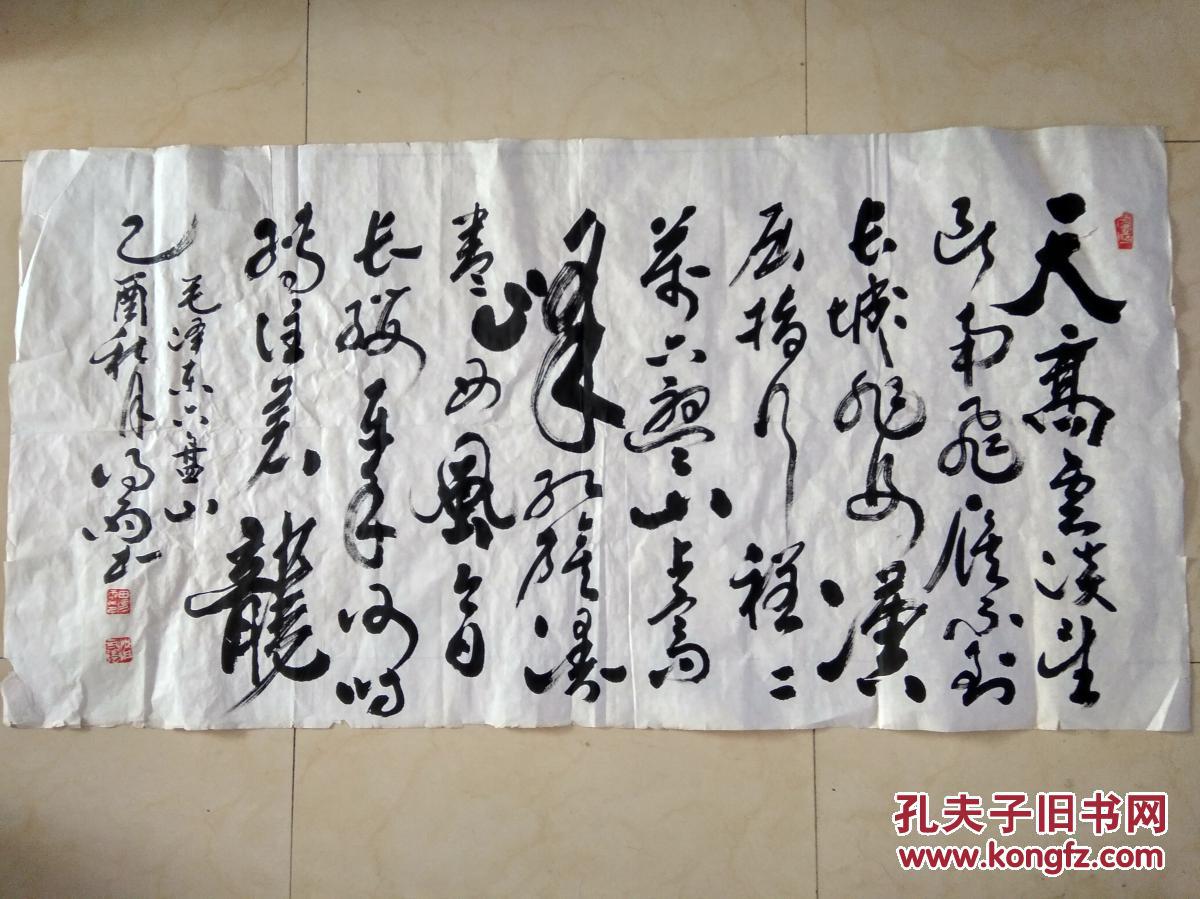 天高雲淡望
断南飛雁不到
长城非好漢
屈指行程二
萬六盤山上高
峰红旗漫
卷西風今日
长缨在手何时
缚住苍龍
毛泽东六盘山
乙酉秋月
孔夫子旧书网
www.kongfz.com